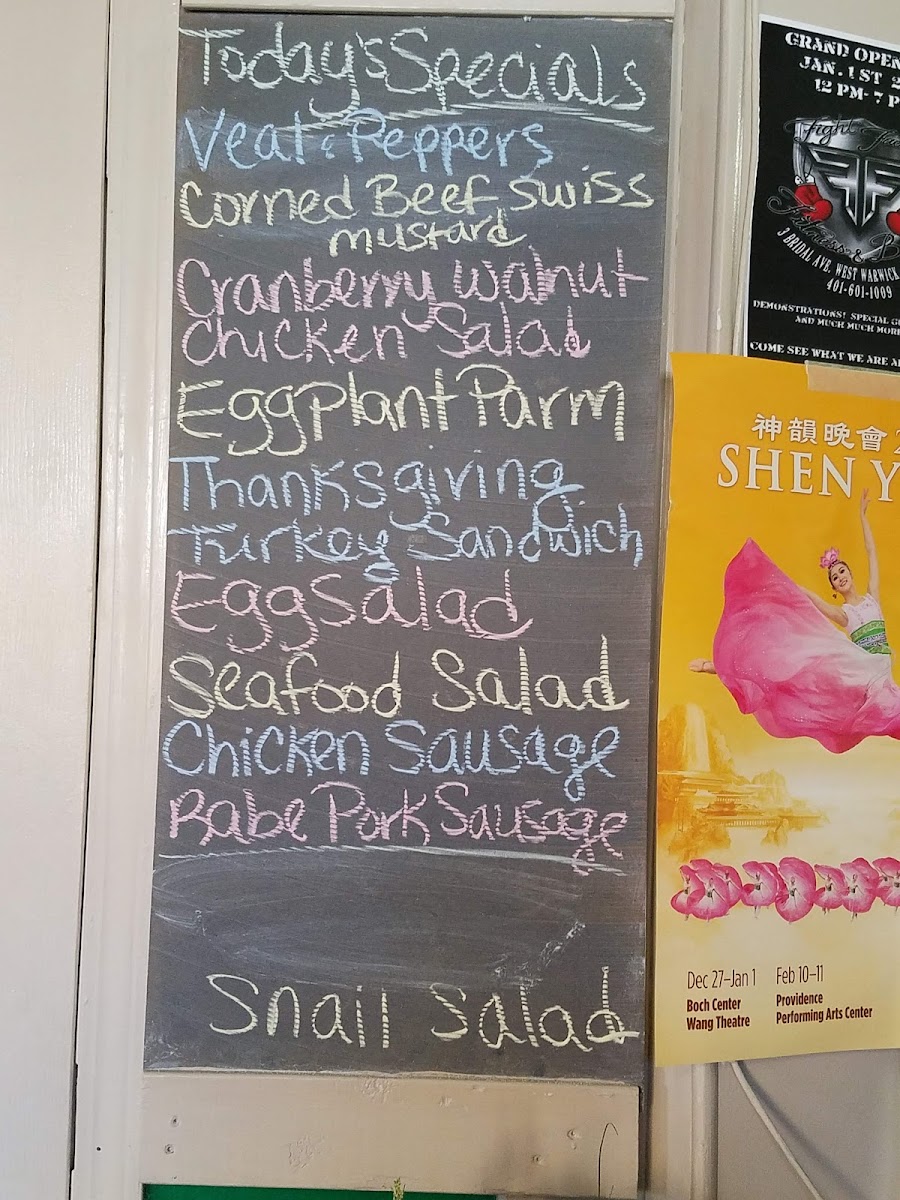 Today's Specials
Veal & Peppers
Corned Beef Swiss
mustard
Cranberry walnut
chicken Salad
Eggplant Parm
Thanksgiving
Turkey Sandwich
Egg Salad
Seafood Salad
Chicken Sausage
Rabe Pork Sausage
Snail Salad
GRAND OPEN
JAN. 1ST 2
12 PM- 7 P
Fight
FF
Fitness & B
3 BRIDAL AVE. WEST WARWICK
401-601-1009
DEMONSTRATIONS! SPECIAL G
AND MUCH MUCH MORE
COME SEE WHAT WE ARE A
神韻晚會 2
SHEN Y
Dec 27–Jan 1
Boch Center
Wang Theatre
Feb 10–11
Providence
Performing Arts Center